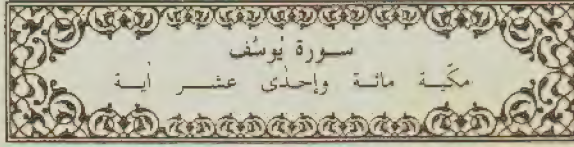 سورة يُوسُف
مكّية مائة وإحدٰى عشر أية